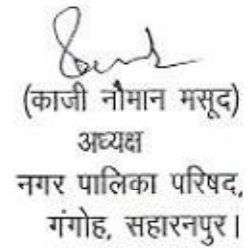 (काजी नौमान मसूद)
अध्यक्ष
नगर पालिका परिषद,
गंगोह, सहारनपुर।